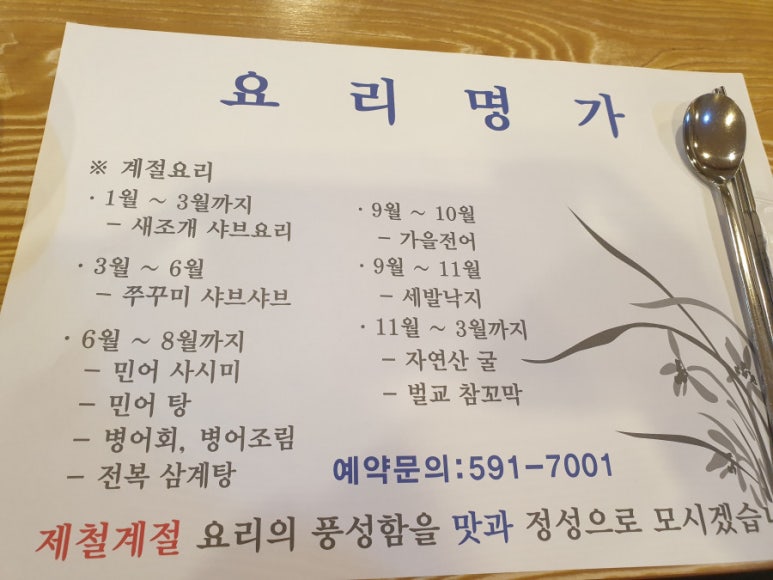 요 리 명 가
※ 계절요리
· 1월 ~ 3월까지
- 새조개 샤브요리
· 3월 ~ 6월
- 쭈꾸미 샤브샤브
· 6월 ~ 8월까지
- 민어 사시미
- 민어 탕
- 병어회, 병어조림
- 전복 삼계탕
· 9월 ~ 10월
- 가을전어
· 9월 ~ 11월
- 세발낙지
· 11월 ~ 3월까지
- 자연산 굴
- 벌교 참꼬막
예약문의:591-7001
제철계절 요리의 풍성함을 맛과 정성으로 모시겠습